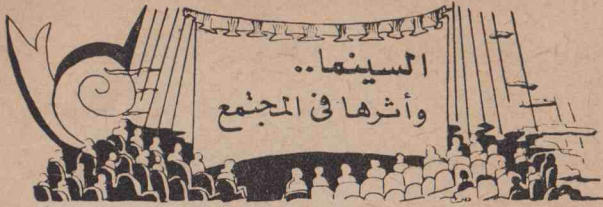 السينما..
وأثرها في المجتمع